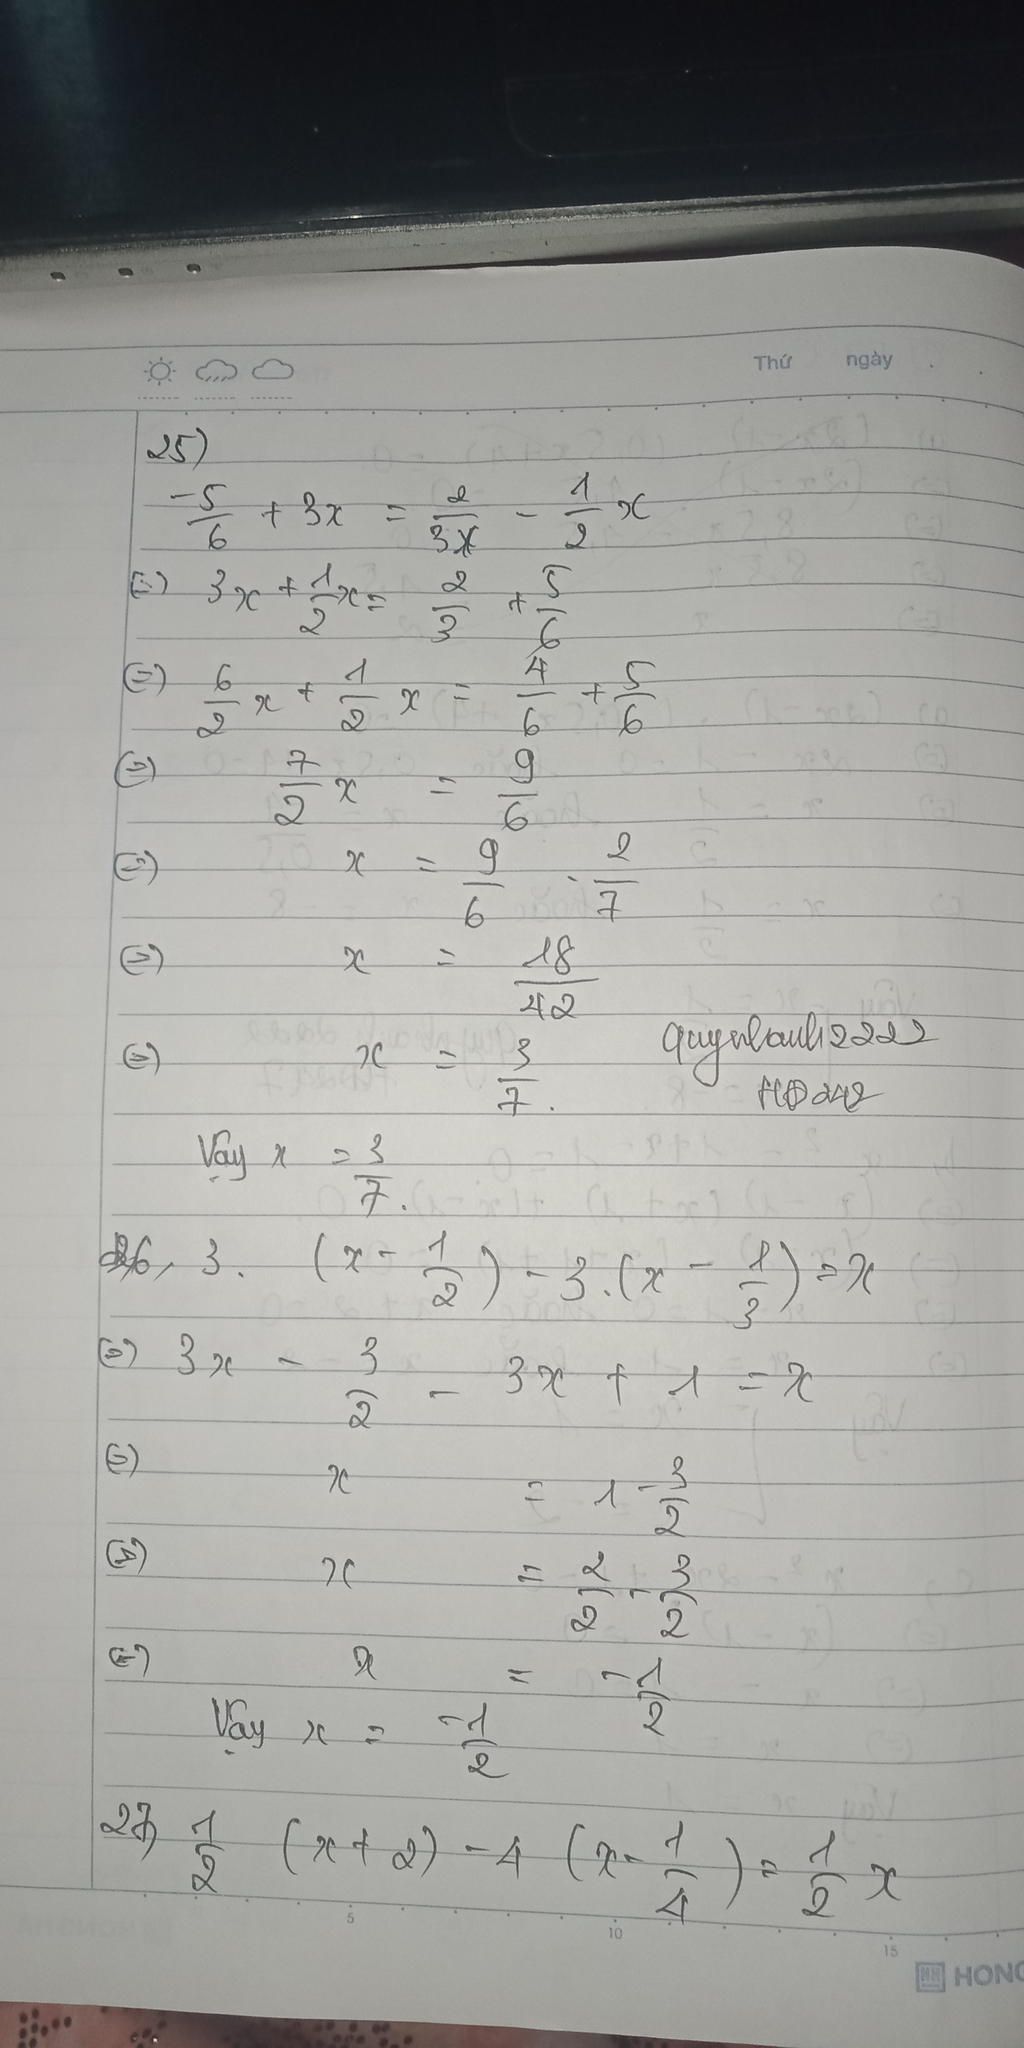 Thứ ngày
25)
-5/6 + 3x = 2/3x - 1/2 x
(=) 3x + 1/2 x = 2/3 + 5/6
(=) 6/2 x + 1/2 x = 4/6 + 5/6
(=) 7/2 x = 9/6
(=) x = 9/6 . 2/7
(=) x = 18/42
(=) x = 3/7.
Quynhanh12222
HD242
Vậy x = 3/7.
26, 3. (x - 1/2) - 3.(x - 1/3) = x
(=) 3x - 3/2 - 3x + 1 = x
(=) x = 1 - 3/2
(=) x = 2/2 - 3/2
(=) x = -1/2
Vậy x = -1/2
27, 1/2 (x + 2) - 4 (x - 1/4) = 1/2 x
5 10 15